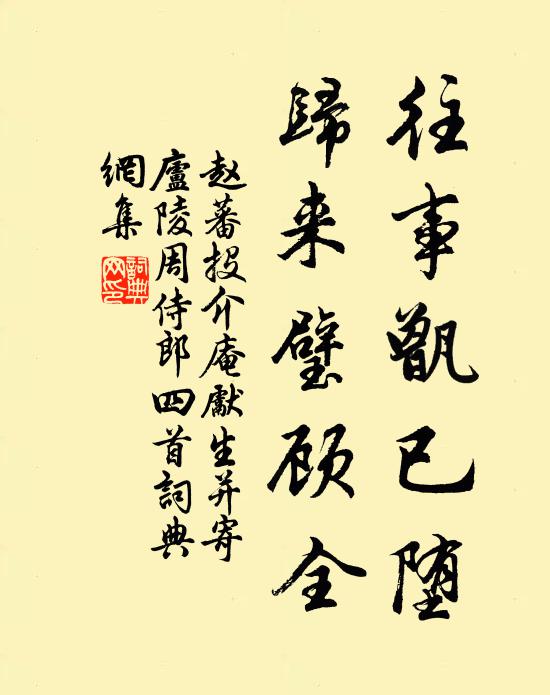 往事甑已堕
歸来璧顾全
赵蕃投介庵獻生并寄
廬陵周侍郎四首詞典
網集
詞典
网印